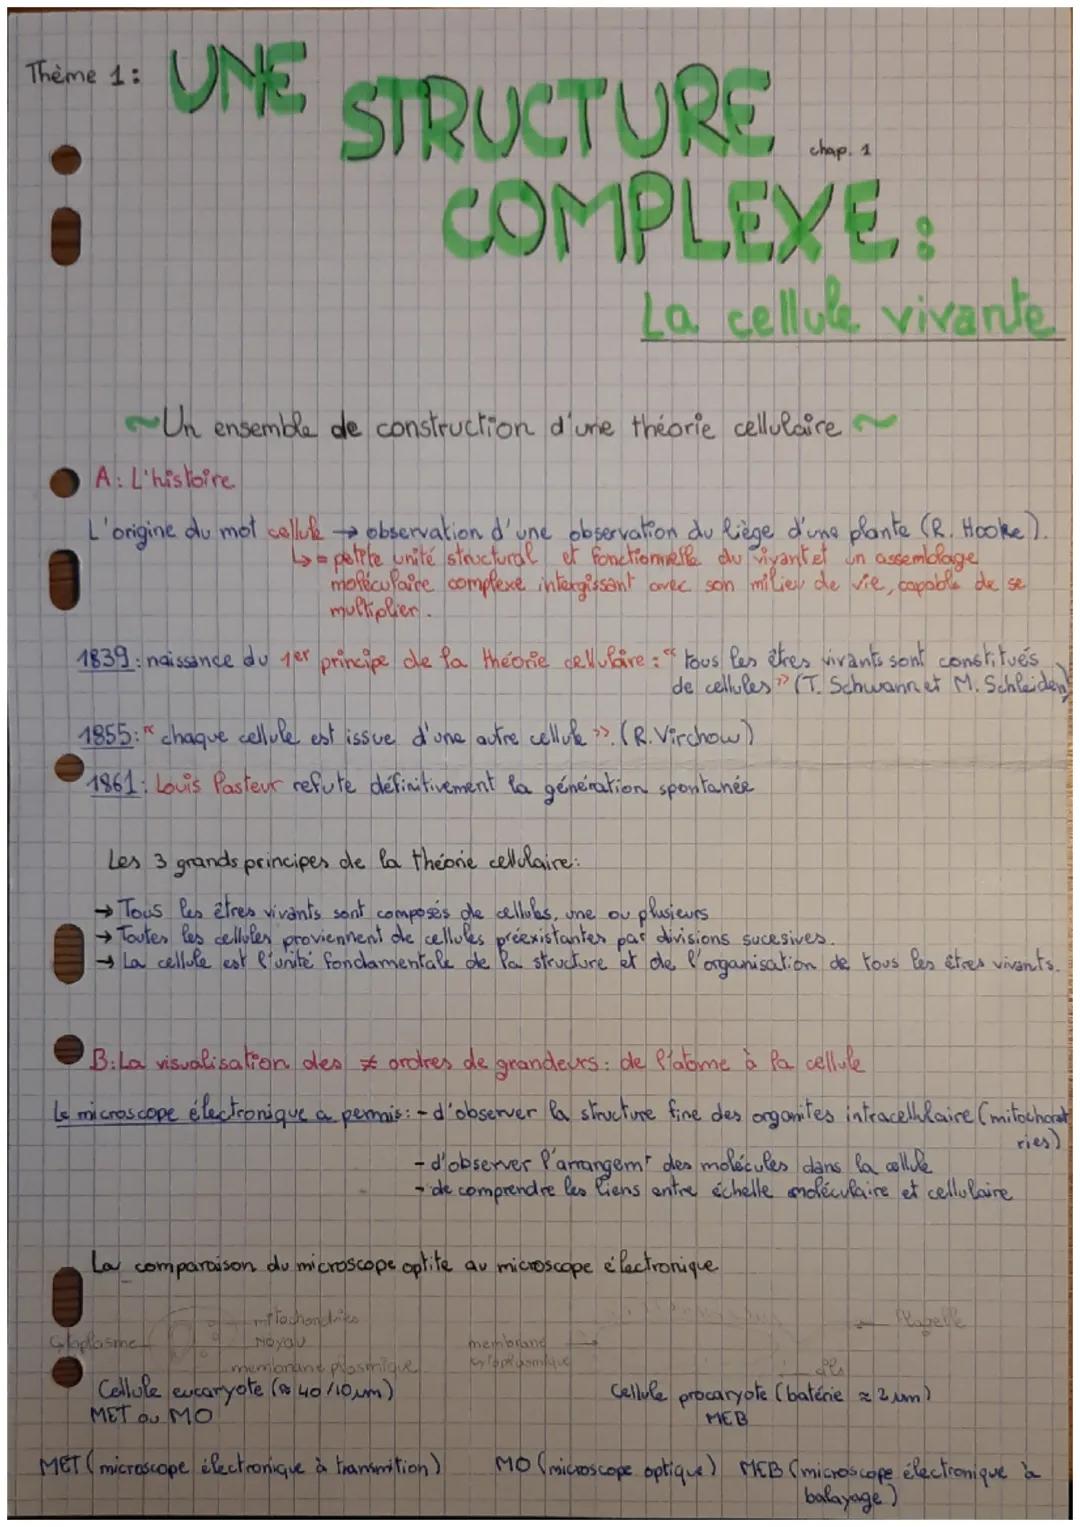 Thème 1: UNE
STRUCTURE
chap. 1
COMPLEXE:
La cellule vivante
~Un ensemble de construction d'une théorie cellulaire ~
A: L'histoire
L'origine du mot cellule → observation d'une observation du liège d'une plante (R. Hooke).
↳ = petite unité structural et fonctionnelle du vivant et un assemblage
moléculaire complexe intergissant avec son milieu de vie, capable de se
multiplier.
1839: naissance du 1er principe de la théorie cellulaire: "tous les êtres vivants sont constitués
de cellules" (T. Schwann et M. Schleiden)
1855: "chaque cellule est issue d'une autre cellule". (R. Virchow)
1861: Louis Pasteur refute définitivement la génération spontanée
Les 3 grands principes de la théorie cellulaire:
→ Tous les êtres vivants sont composés de cellules, une ou plusieurs
→ Toutes les cellules proviennent de cellules préexistantes par divisions sucesives.
→ La cellule est l'unité fondamentale de la structure et de l'organisation de tous les êtres vivants.
B: La visualisation des ≠ ordres de grandeurs: de l'atome à la cellule
Le microscope électronique a permis: - d'observer la structure fine des organites intracellulaire (mitochond
ries)
- d'observer l'arrangemt des molécules dans la cellule
- de comprendre les liens entre échelle moléculaire et cellulaire
La comparaison du microscope optite au microscope électronique
mitochondries
Flagelle
Cytoplasme
Noyau
membrane
membrane plasmique
cytoplasmique
Cellule eucaryote (≈ 40/10 µm)
Cellule procaryote (batérie ≈ 2 µm)
MET ou MO
MEB
MET (microscope électronique à transmition)
MO (microscope optique)
MEB (microscope électronique à
balayage)